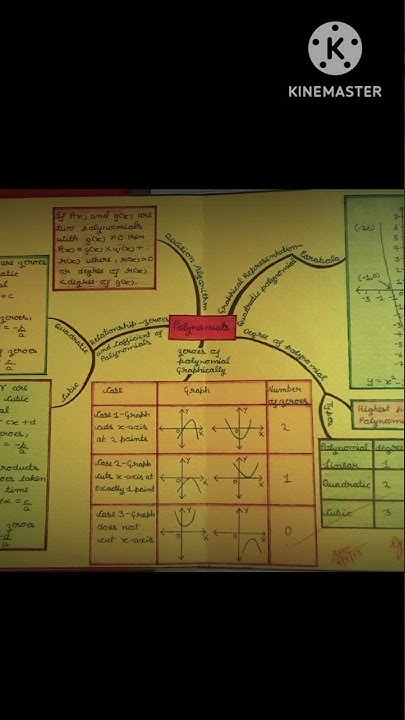 K
KINEMASTER
If P(x) and g(x) are
two polynomials
with g(x) ≠ 0 then
P(x) = g(x) × q(x) +
r(x) where, r(x) = 0
or degree of r(x)
< degree of g(x).
Division Algorithm
Graphical Representation
Quadratic polynomial
Parabola
Polynomials
Relationship-zeroes
and Coefficient of
Polynomials
Quadratic
Cubic
Degree of polynomial
Types
zeroes of
polynomial
Graphically
are zeroes
zeroes
Y are
cubic
cx + d
zeroes,
= -b/a
products
taken
time
= c/a
zeroes
(-1,0)
-3 -2 -1
Highest p
Polynom
Case
Graph
Number
of zeroes
Case 1-Graph
cuts x-axis
at 2 points
2
Case 2-Graph
cuts x-axis at
exactly 1 point
1
Case 3-Graph
does not
cut x-axis
0
Polynomial degree
Linear 1
Quadratic 2
Cubic 3